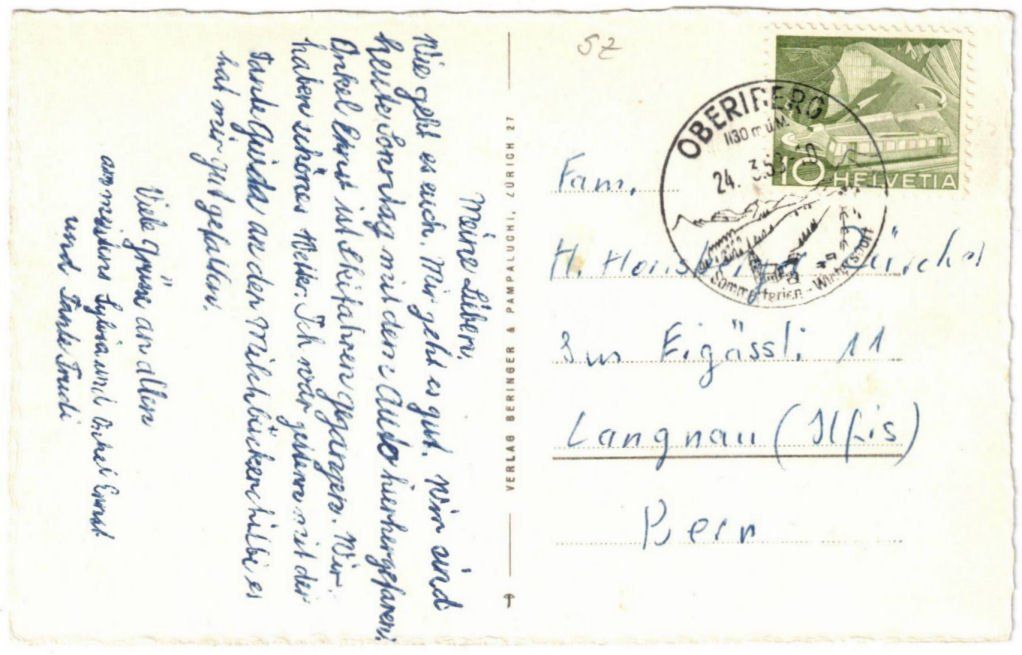 Meine Lieben.
Wie geht es euch. Mir geht es gut. Wir sind
heute Sonntag mit dem Auto hierhergefaren.
Onkel Ernst ist Skifahren gegangen. Wir
haben schönes Wetter. Ich war gestern mit der
Tante Guida an der Milchbückerchilbi es
hat mir gut gefallen.
Viele Grüsse an allen
am meistens Sylvia und Onkel Ernst
und Tante Trudi
VERLAG BERINGER & PAMPALUCHI, ZÜRICH 27
SZ
OBERIBERG
1130 m ü.M.
24. 3.53
Sommerferien - Wintersport
10 HELVETIA
Fam.
H.
Zum Eigässli 11
Langnau (Ilfis)
Bern